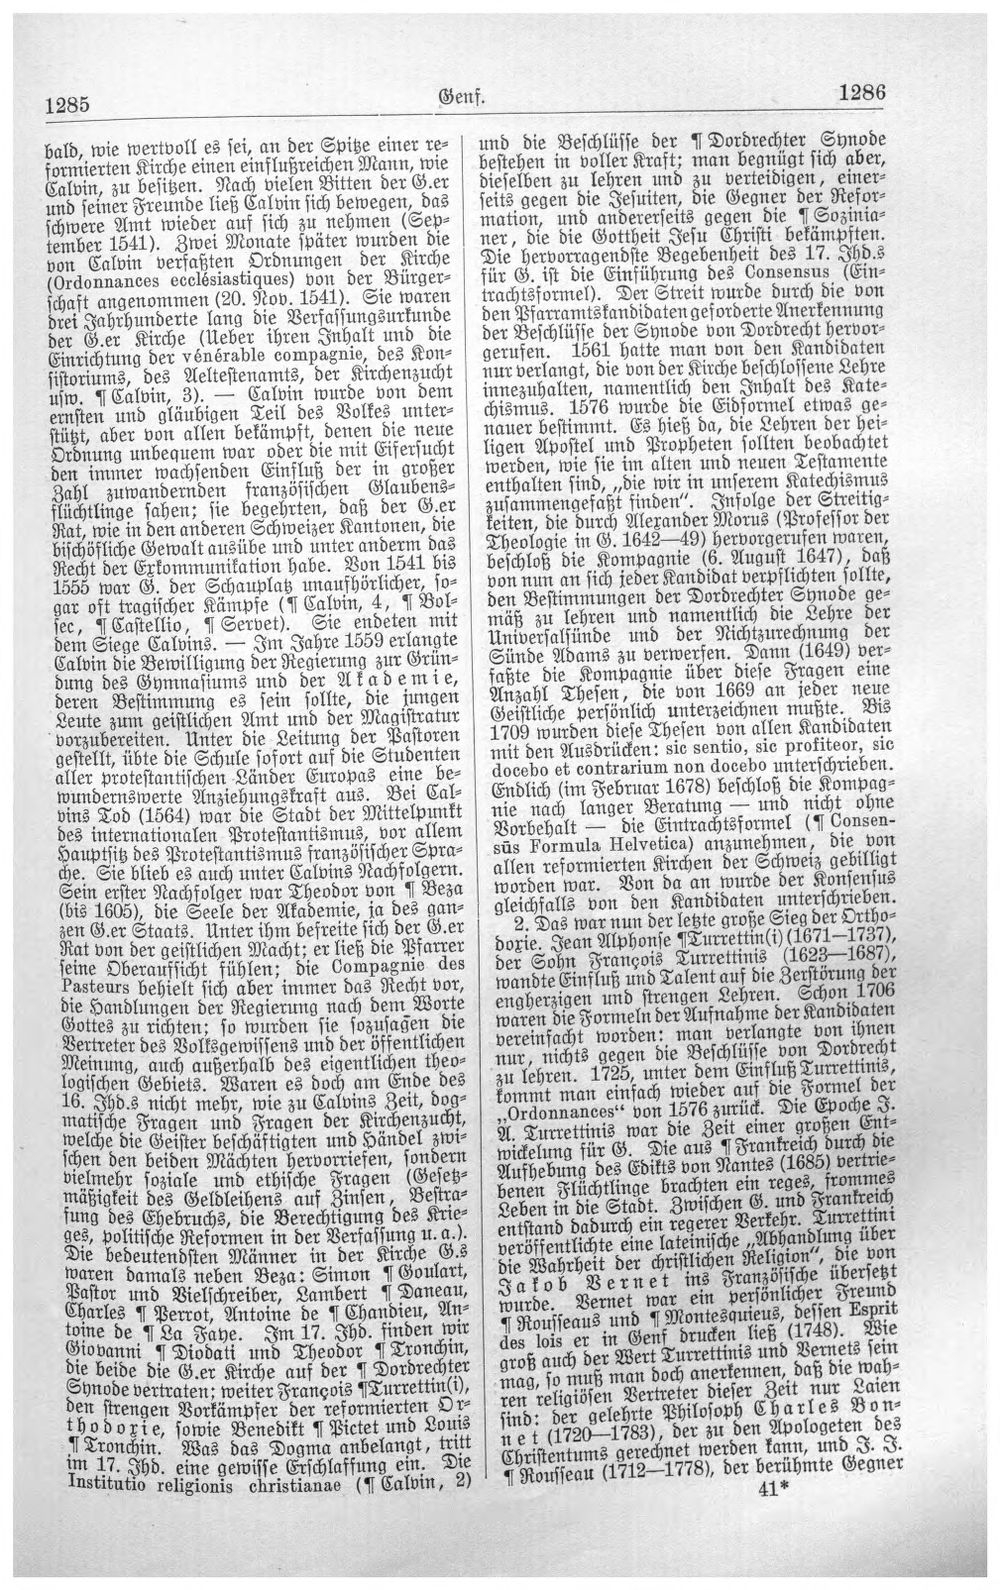 1285
Genf.
1286
bald, wie wertvoll es sei, an der Spitze einer re-
formierten Kirche einen einflußreichen Mann, wie
Calvin, zu besitzen. Nach vielen Bitten der G.er
und seiner Freunde ließ Calvin sich bewegen, das
schwere Amt wieder auf sich zu nehmen (Sep-
tember 1541). Zwei Monate später wurden die
von Calvin verfaßten Ordnungen der Kirche
(Ordonnances ecclésiastiques) von der Bürger-
schaft angenommen (20. Nov. 1541). Sie waren
drei Jahrhunderte lang die Verfassungsurkunde
der G.er Kirche (Ueber ihren Inhalt und die
Einrichtung der vénérable compagnie, des Kon-
sistoriums, des Aeltestenamts, der Kirchenzucht
usw. ¶ Calvin, 3). — Calvin wurde von dem
ernsten und gläubigen Teil des Volkes unter-
stützt, aber von allen bekämpft, denen die neue
Ordnung unbequem war oder die mit Eifersucht
den immer wachsenden Einfluß der in großer
Zahl zuwandernden französischen Glaubens-
flüchtlinge sahen; sie begehrten, daß der G.er
Rat, wie in den anderen Schweizer Kantonen, die
bischöfliche Gewalt ausübe und unter anderm das
Recht der Exkommunikation habe. Von 1541 bis
1555 war G. der Schauplatz unaufhörlicher, so-
gar oft tragischer Kämpfe (¶ Calvin, 4, ¶ Bol-
sec, ¶ Castellio, ¶ Servet). Sie endeten mit
dem Siege Calvins. — Im Jahre 1559 erlangte
Calvin die Bewilligung der Regierung zur Grün-
dung des Gymnasiums und der Akademie,
deren Bestimmung es sein sollte, die jungen
Leute zum geistlichen Amt und der Magistratur
vorzubereiten. Unter die Leitung der Pastoren
gestellt, übte die Schule sofort auf die Studenten
aller protestantischen Länder Europas eine be-
wundernswerte Anziehungskraft aus. Bei Cal-
vins Tod (1564) war die Stadt der Mittelpunkt
des internationalen Protestantismus, vor allem
Hauptsitz des Protestantismus französischer Spra-
che. Sie blieb es auch unter Calvins Nachfolgern.
Sein erster Nachfolger war Theodor von ¶ Beza
(bis 1605), die Seele der Akademie, ja des gan-
zen G.er Staats. Unter ihm befreite sich der G.er
Rat von der geistlichen Macht; er ließ die Pfarrer
seine Oberaufsicht fühlen; die Compagnie des
Pasteurs behielt sich aber immer das Recht vor,
die Handlungen der Regierung nach dem Worte
Gottes zu richten; so wurden sie sozusagen die
Vertreter des Volksgewissens und der öffentlichen
Meinung, auch außerhalb des eigentlichen theo-
logischen Gebiets. Waren es doch am Ende des
16. Jhd.s nicht mehr, wie zu Calvins Zeit, dog-
matische Fragen und Fragen der Kirchenzucht,
welche die Geister beschäftigten und Händel zwi-
schen den beiden Mächten hervorriefen, sondern
vielmehr soziale und ethische Fragen (Gesetz-
mäßigkeit des Geldleihens auf Zinsen, Bestra-
fung des Ehebruchs, die Berechtigung des Krie-
ges, politische Reformen in der Verfassung u. a.).
Die bedeutendsten Männer in der Kirche G.s
waren damals neben Beza: Simon ¶ Goulart,
Pastor und Vielschreiber, Lambert ¶ Daneau,
Charles ¶ Perrot, Antoine de ¶ Chandieu, An-
toine de ¶ La Faye. Im 17. Jhd. finden wir
Giovanni ¶ Diodati und Theodor ¶ Tronchin,
die beide die G.er Kirche auf der ¶ Dordrechter
Synode vertraten; weiter François ¶Turrettin(i),
den strengen Vorkämpfer der reformierten Or-
thodoxie, sowie Benedikt ¶ Pictet und Louis
¶ Tronchin. Was das Dogma anbelangt, tritt
im 17. Jhd. eine gewisse Erschlaffung ein. Die
Institutio religionis christianae (¶ Calvin, 2)
und die Beschlüsse der ¶ Dordrechter Synode
bestehen in voller Kraft; man begnügt sich aber,
dieselben zu lehren und zu verteidigen, einer-
seits gegen die Jesuiten, die Gegner der Refor-
mation, und andererseits gegen die ¶ Sozinia-
ner, die die Gottheit Jesu Christi bekämpften.
Die hervorragendste Begebenheit des 17. Jhd.s
für G. ist die Einführung des Consensus (Ein-
trachtsformel). Der Streit wurde durch die von
den Pfarramtskandidaten geforderte Anerkennung
der Beschlüsse der Synode von Dordrecht hervor-
gerufen. 1561 hatte man von den Kandidaten
nur verlangt, die von der Kirche beschlossene Lehre
innezuhalten, namentlich den Inhalt des Kate-
chismus. 1576 wurde die Eidformel etwas ge-
nauer bestimmt. Es hieß da, die Lehren der hei-
ligen Apostel und Propheten sollten beobachtet
werden, wie sie im alten und neuen Testamente
enthalten sind, „die wir in unserem Katechismus
zusammengefaßt finden“. Infolge der Streitig-
keiten, die durch Alexander Morus (Professor der
Theologie in G. 1642—49) hervorgerufen waren,
beschloß die Kompagnie (6. August 1647), daß
von nun an sich jeder Kandidat verpflichten sollte,
den Bestimmungen der Dordrechter Synode ge-
mäß zu lehren und namentlich die Lehre der
Universalsünde und der Nichtzurechnung der
Sünde Adams zu verwerfen. Dann (1649) ver-
faßte die Kompagnie über diese Fragen eine
Anzahl Thesen, die von 1669 an jeder neue
Geistliche persönlich unterzeichnen mußte. Bis
1709 wurden diese Thesen von allen Kandidaten
mit den Ausdrücken: sic sentio, sic profiteor, sic
docebo et contrarium non docebo unterschrieben.
Endlich (im Februar 1678) beschloß die Kompag-
nie nach langer Beratung — und nicht ohne
Vorbehalt — die Eintrachtsformel (¶ Consen-
sūs Formula Helvetica) anzunehmen, die von
allen reformierten Kirchen der Schweiz gebilligt
worden war. Von da an wurde der Konsensus
gleichfalls von den Kandidaten unterschrieben.
2. Das war nun der letzte große Sieg der Ortho-
doxie. Jean Alphonse ¶Turrettin(i) (1671—1737),
der Sohn François Turrettinis (1623—1687),
wandte Einfluß und Talent auf die Zerstörung der
engherzigen und strengen Lehren. Schon 1706
waren die Formeln der Aufnahme der Kandidaten
vereinfacht worden: man verlangte von ihnen
nur, nichts gegen die Beschlüsse von Dordrecht
zu lehren. 1725, unter dem Einfluß Turrettinis,
kommt man einfach wieder auf die Formel der
„Ordonnances“ von 1576 zurück. Die Epoche J.
A. Turrettinis war die Zeit einer großen Ent-
wickelung für G. Die aus ¶ Frankreich durch die
Aufhebung des Edikts von Nantes (1685) vertrie-
benen Flüchtlinge brachten ein reges, frommes
Leben in die Stadt. Zwischen G. und Frankreich
entstand dadurch ein regerer Verkehr. Turrettini
veröffentlichte eine lateinische „Abhandlung über
die Wahrheit der christlichen Religion“, die von
Jakob Vernet ins Französische übersetzt
wurde. Vernet war ein persönlicher Freund
¶ Rousseaus und ¶ Montesquieus, dessen Esprit
des lois er in Genf drucken ließ (1748). Wie
groß auch der Wert Turrettinis und Vernets sein
mag, so muß man doch anerkennen, daß die wah-
ren religiösen Vertreter dieser Zeit nur Laien
sind: der gelehrte Philosoph Charles Bon-
net (1720—1783), der zu den Apologeten des
Christentums gerechnet werden kann, und J. J.
¶ Rousseau (1712—1778), der berühmte Gegner
41*